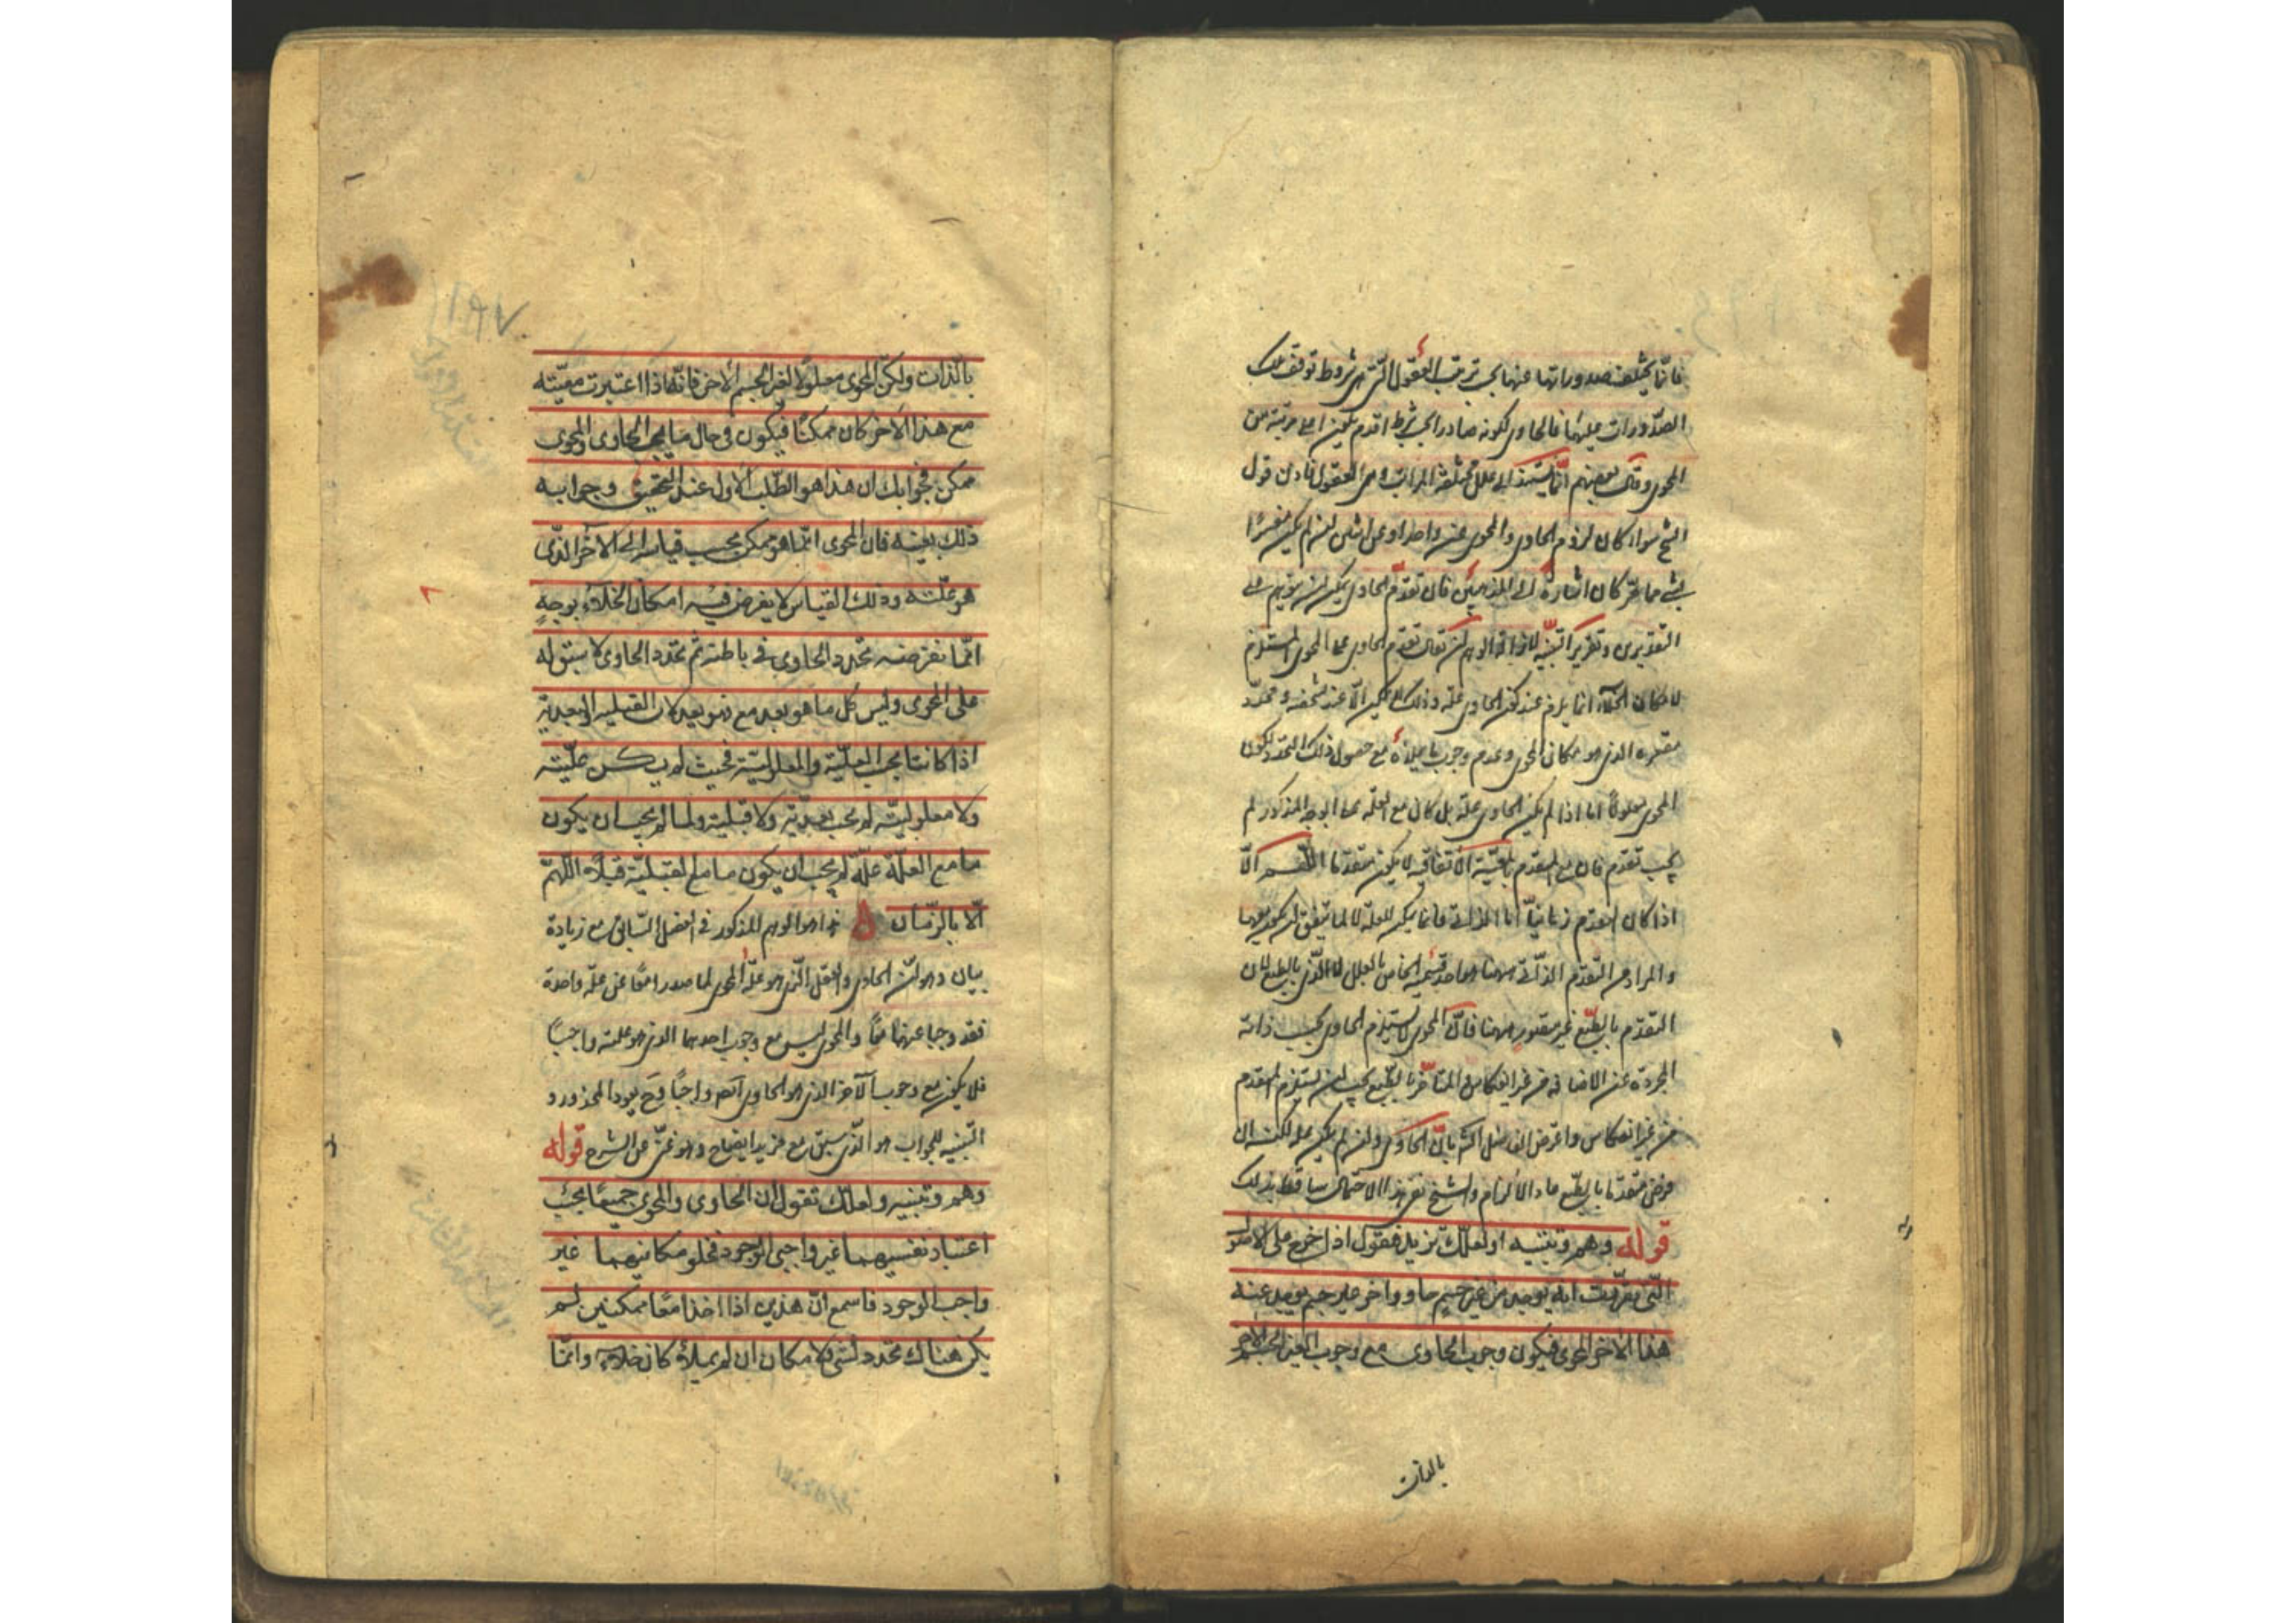 فانما يختلف صدوراتها عنها بحسب ترتب العقول التي هي شروط توقف تلك
الصدورات عليها فالحاوي لكونه صادرا بحسب شرط اقدم يكون اعلى مرتبة من
المحوي وقال بعضهم انما يستند الى علل مختلفة المراتب وهي العقول فاذن قول
الشيخ سواء كان لزوم الحاوي والمحوي عن واحد او عن اثنين ان لم يكن مفسرا
بشيء مما مر كان اشارة الى المذهبين فان تقدم الحاوي يمكن ان يتوهم على
التقديرين وتقرير التنبيه لازالة الوهم ان تقال تقدم الحاوي على المحوي المستلزم
لامكان الخلاء انما يلزم عند كون الحاوي علة وذلك لا يمكن الا عند تشخصه وتحدد
مقعره الذي هو مكان المحوي وعدم وجوب ما يملأه مع حصول ذلك التحدد لكون
المحوي معلولا اما اذا لم يكن الحاوي علة بل كان مع العلة على الوجه المذكور لم
يجب تقدم فان مع المتقدم بالمعية الاتفاقية لا يكون متقدما اللهم الا
اذا كان التقدم زمانيا اما الذاتي فانما يكون للعلة لا لما يتفق ان يكون معها
والمراد من التقدم الذاتي ههنا هو احد قسميه الخاص بالعلل لا الذي بالطبع لان
التقدم بالطبع غير متصور ههنا فان المحوي لا يستلزم الحاوي بحسب ذاته
المجردة عن الاضافة من غير انعكاس والمتأخر بالطبع يجب ان يستلزم المتقدم
من غير انعكاس واعترض الفاضل الشارح بان الحاوي وان لم يكن علة لكنه ان
فرض متقدما بالطبع عاد الالزام والشيخ نفى هذا الاحتمال ساقط بذلك
قوله وهم وتنبيه او لعلك تزيد فتقول اذا خرج على الاصول
التي تقررت انه يوجد من غير جسم حاو واخر غير جسم يوجد عنه
هذا الاخر المحوي فيكون وجوب الحاوي مع وجوب الغير الجسم الاخر
بالذات
بالذات ولكن المحوي معلولا لغير الجسم الاخر فانه اذا اعتبرت معيته
مع هذا الاخر كان ممكنا فيكون في حال ما يجب الحاوي والمحوي
ممكن فجوابك ان هذا هو الطلب الاول عند التحقيق وجوابه
ذلك بعينه فان المحوي انما هو ممكن بحسب قياسه الى الاخر الذي
هو علته وذلك القياس لا يفرض فيه امكان الخلاء بوجه
انما نفرضه تحدد الحاوي في باطنه ثم تحدد الحاوي لا سبق له
على المحوي وليس كل ما هو بعد مع فهو بعد لان القبلية والبعدية
اذا كانتا بحسب العلية والمعلولية فحيث لم يكن علية
ولا معلولية لم يجب بعدية ولا قبلية ولما لم يجب ان يكون
ما مع العلة علة لم يجب ان يكون ما مع القبلية قبلا اللهم
الا بالزمان هذا هو الوهم المذكور في الفصل السابق مع زيادة
بيان وهو ان الحاوي والعقل الذي هو علة المحوي لما صدرا معا عن علة واحدة
فقد وجبا عنهما معا والمحوي ليس مع وجوب احدهما الذي هو علته واجبا
فلا يكون مع وجوب الاخر الذي هو الحاوي ايضا واجبا وح يعود المحذور و
التنبيه للجواب هو الذي سبق مع مزيد ايضاح وهو غني عن الشرح قوله
وهم وتنبيه ولعلك تقول ان الحاوي والمحوي جميعا بحسب
اعتبار نفسيهما غير واجبي الوجود فخلو مكانيهما غير
واجب الوجود فاسمع ان هذين اذا اخذا معا ممكنين لم
يكن هناك تحدد لشيء لامكان ان لم يملأه كان خلاء وانما